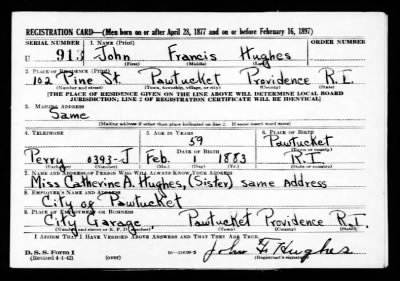 REGISTRATION CARD—(Men born on or after April 28, 1877 and on or before February 16, 1897)
SERIAL NUMBER 1. NAME (Print) ORDER NUMBER
U 913 John Francis Hughes
(First) (Middle) (Last)
2. PLACE OF RESIDENCE (Print)
102 Pine St. Pawtucket Providence R.I.
(Number and street) (Town, township, village, or city) (County) (State)
[THE PLACE OF RESIDENCE GIVEN ON THE LINE ABOVE WILL DETERMINE LOCAL BOARD
JURISDICTION; LINE 2 OF REGISTRATION CERTIFICATE WILL BE IDENTICAL]
3. MAILING ADDRESS
Same
[Mailing address if other than place indicated on line 2. If same insert word same]
4. TELEPHONE 5. AGE IN YEARS 6. PLACE OF BIRTH
59 Pawtucket
DATE OF BIRTH (Town or county)
Perry 0393-J Feb. 1 1883 R.I.
(Exchange) (Number) (Mo.) (Day) (Yr.) (State or country)
7. NAME AND ADDRESS OF PERSON WHO WILL ALWAYS KNOW YOUR ADDRESS
Miss Catherine A. Hughes, (Sister) same Address
8. EMPLOYER'S NAME AND ADDRESS
City of Pawtucket
9. PLACE OF EMPLOYMENT OR BUSINESS
City Garage, Pawtucket Providence R.I.
(Number and street or R. F. D. number) (Town) (County) (State)
I AFFIRM THAT I HAVE VERIFIED ABOVE ANSWERS AND THAT THEY ARE TRUE.
D. S. S. Form 1
(Revised 4-1-42) (over) John F Hughes
(Registrant's signature)